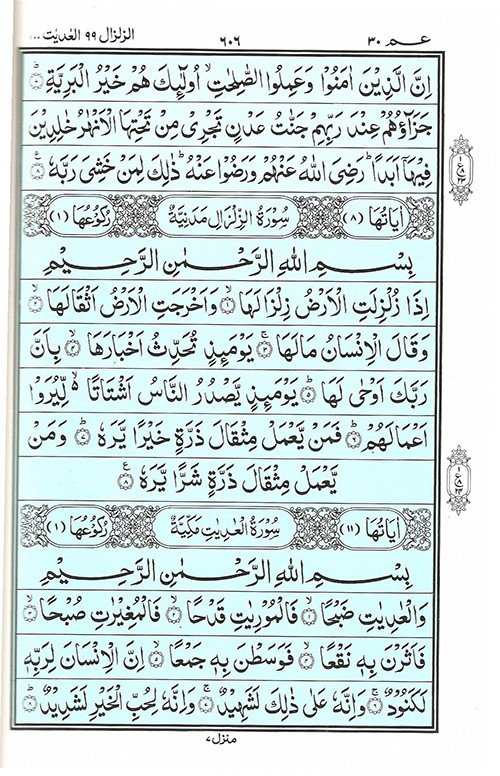 عـم ٣٠ ٦٠٦ الزلزال ٩٩ العٰديٰت ١٠٠
اِنَّ الَّذِيْنَ اٰمَنُوْا وَعَمِلُوا الصّٰلِحٰتِ ۙ اُولٰٓئِكَ هُمْ خَيْرُ الْبَرِيَّةِ ؕ
جَزَآؤُهُمْ عِنْدَ رَبِّهِمْ جَنّٰتُ عَدْنٍ تَجْرِيْ مِنْ تَحْتِهَا الْاَنْهٰرُ خٰلِدِيْنَ
فِيْهَآ اَبَدًا ؕ رَضِيَ اللّٰهُ عَنْهُمْ وَرَضُوْا عَنْهُ ؕ ذٰلِكَ لِمَنْ خَشِيَ رَبَّهٗ ۝٨
اٰيَاتُهَا (٨) سُوْرَةُ الزِّلْزَالِ مَدَنِيَّةٌ رُكُوْعُهَا (١)
بِسْمِ اللّٰهِ الرَّحْمٰنِ الرَّحِيْمِ
اِذَا زُلْزِلَتِ الْاَرْضُ زِلْزَالَهَا ۝١ وَاَخْرَجَتِ الْاَرْضُ اَثْقَالَهَا ۝٢
وَقَالَ الْاِنْسَانُ مَالَهَا ۝٣ يَوْمَئِذٍ تُحَدِّثُ اَخْبَارَهَا ۝٤ بِاَنَّ
رَبَّكَ اَوْحٰى لَهَا ۝٥ يَوْمَئِذٍ يَّصْدُرُ النَّاسُ اَشْتَاتًا ۙ لِّيُرَوْا
اَعْمَالَهُمْ ۝٦ فَمَنْ يَّعْمَلْ مِثْقَالَ ذَرَّةٍ خَيْرًا يَّرَهٗ ۝٧ وَمَنْ
يَّعْمَلْ مِثْقَالَ ذَرَّةٍ شَرًّا يَّرَهٗ ۝٨
اٰيَاتُهَا (١١) سُوْرَةُ الْعٰدِيٰتِ مَكِّيَّةٌ رُكُوْعُهَا (١)
بِسْمِ اللّٰهِ الرَّحْمٰنِ الرَّحِيْمِ
وَالْعٰدِيٰتِ ضَبْحًا ۝١ فَالْمُوْرِيٰتِ قَدْحًا ۝٢ فَالْمُغِيْرٰتِ صُبْحًا ۝٣
فَاَثَرْنَ بِهٖ نَقْعًا ۝٤ فَوَسَطْنَ بِهٖ جَمْعًا ۝٥ اِنَّ الْاِنْسَانَ لِرَبِّهٖ
لَكَنُوْدٌ ۝٦ وَاِنَّهٗ عَلٰى ذٰلِكَ لَشَهِيْدٌ ۝٧ وَاِنَّهٗ لِحُبِّ الْخَيْرِ لَشَدِيْدٌ ۝٨
منزل ٧